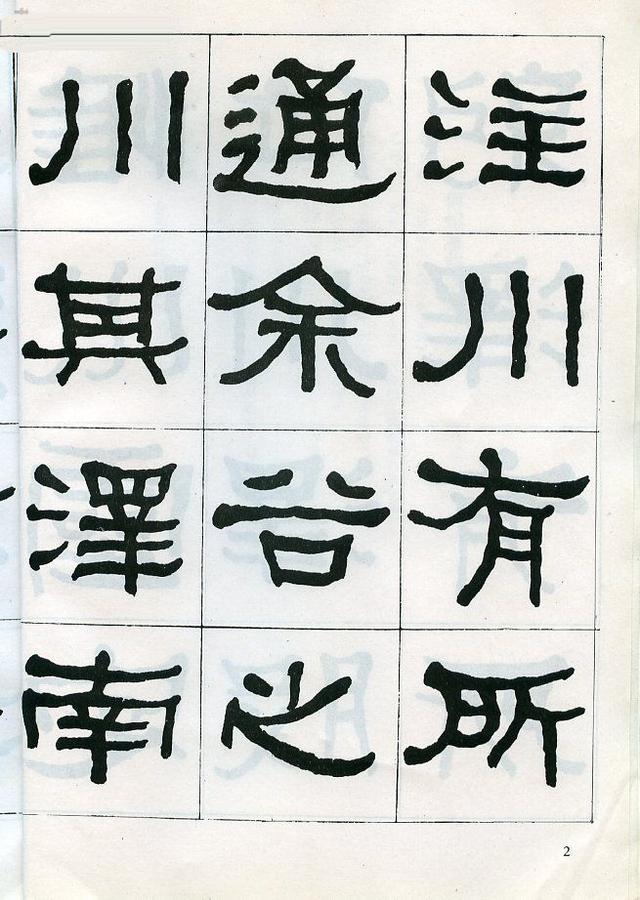 注川有所
通余谷之
川其澤南
2